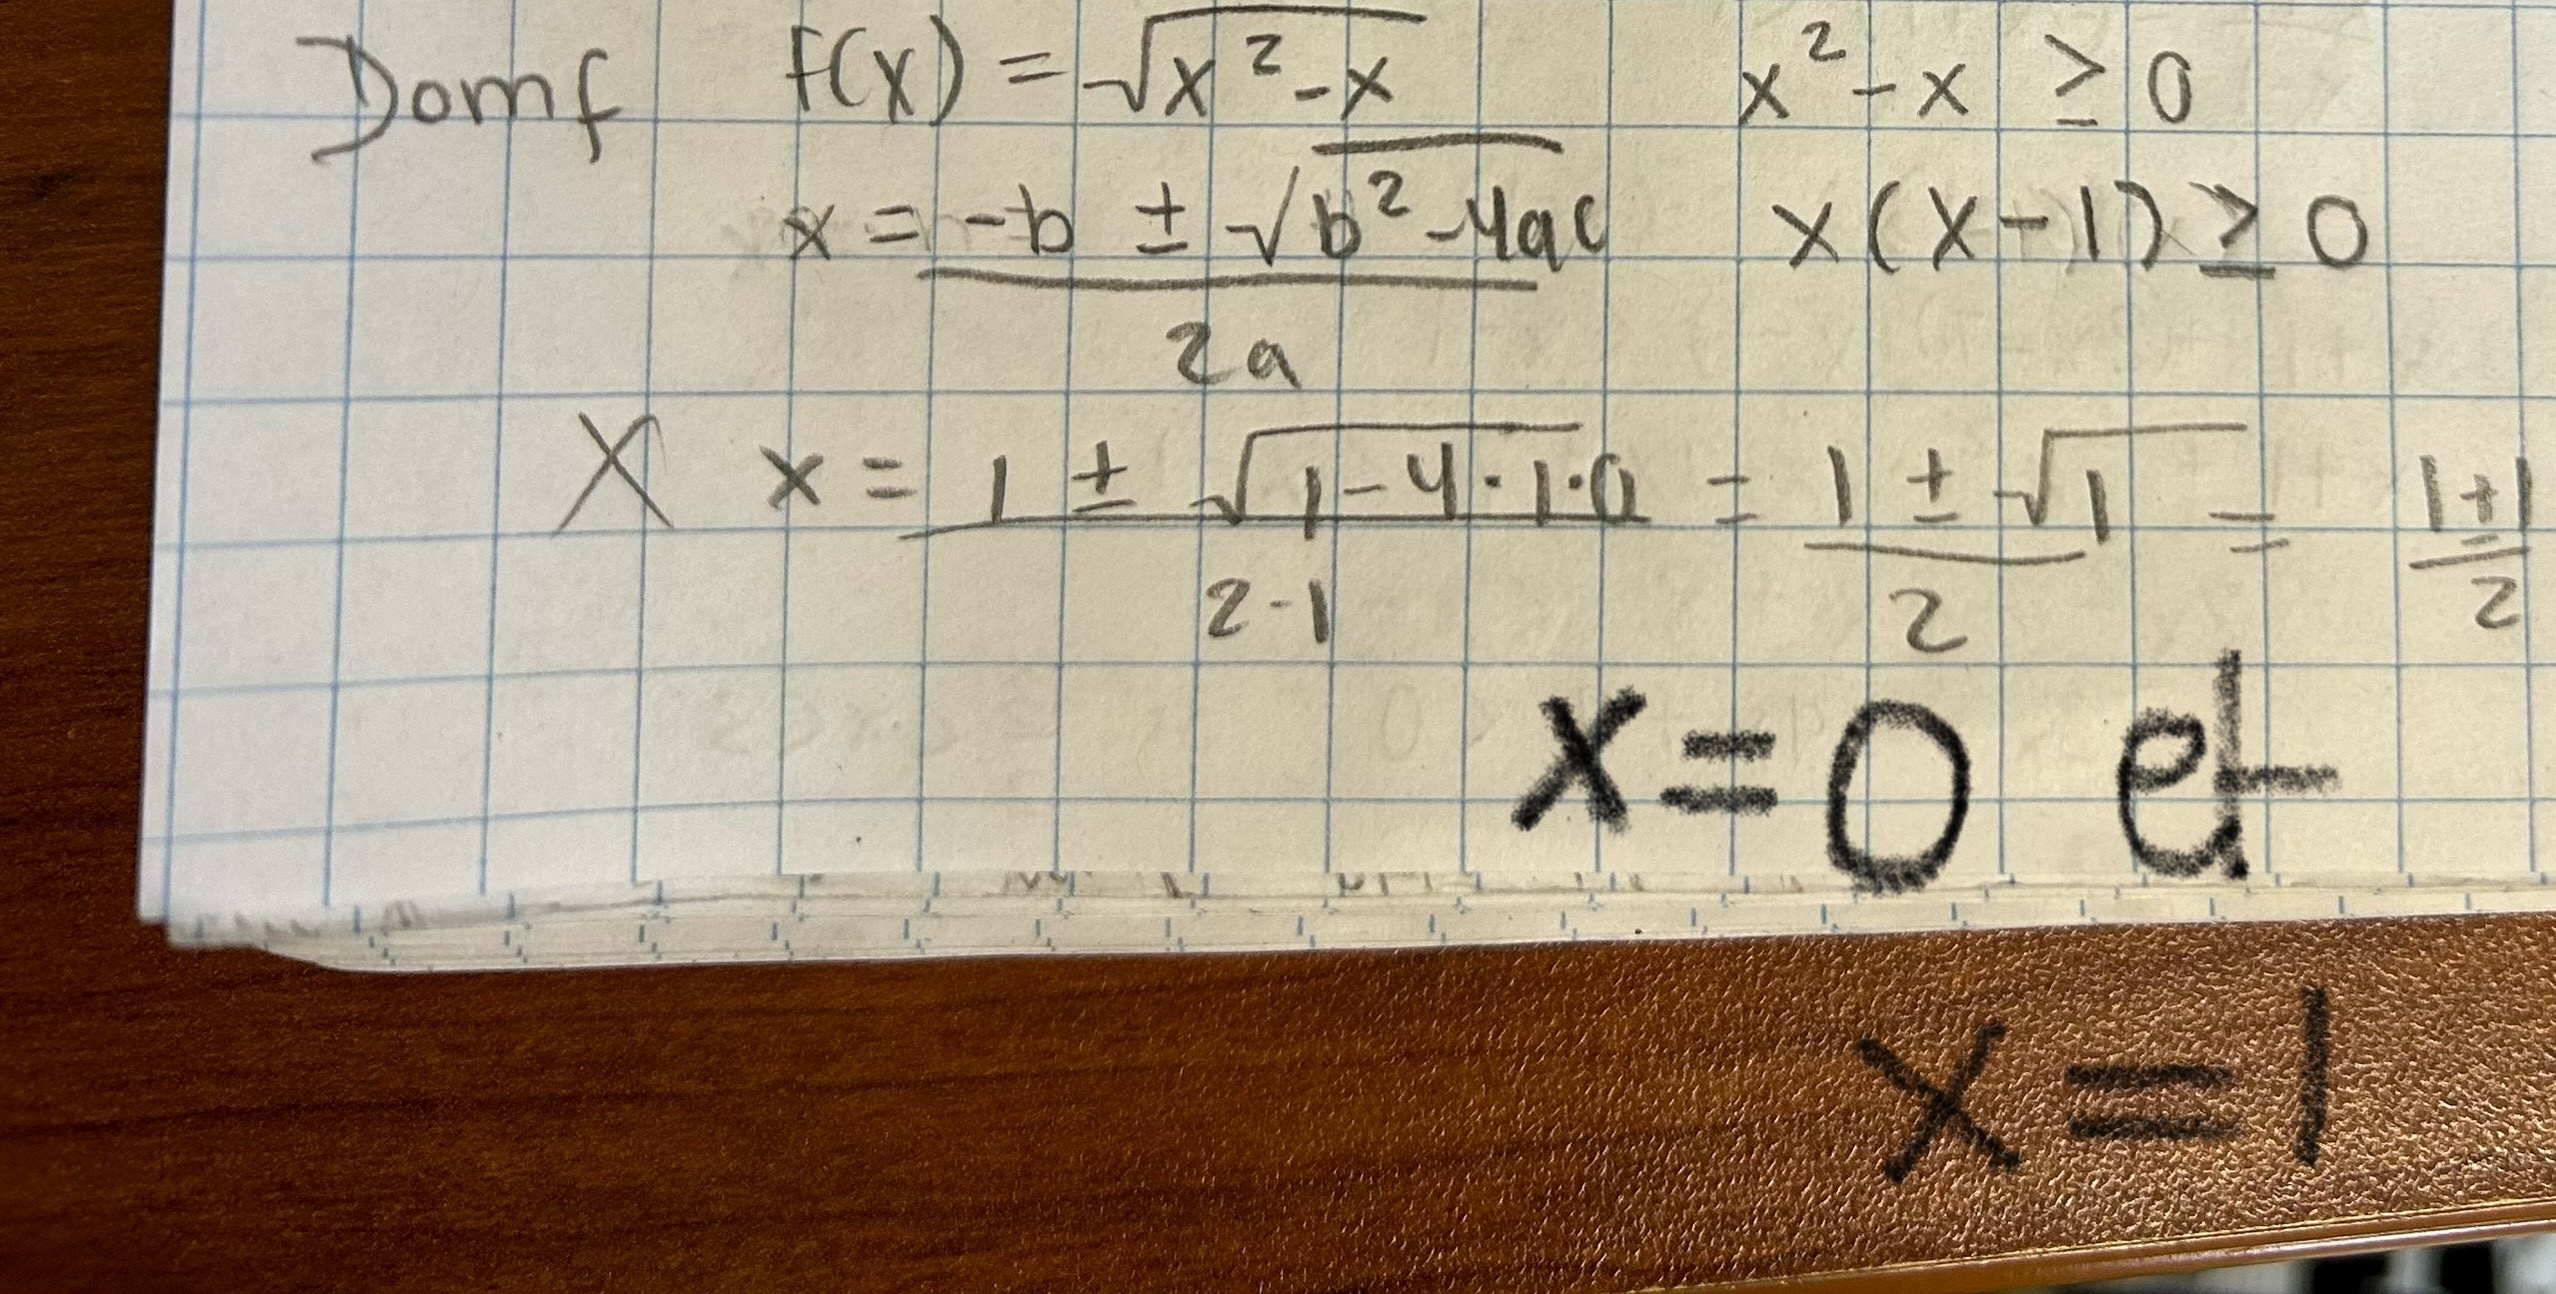 Domf f(x) = √x² - x x² - x ≥ 0
x = -b ± √b² - 4ac x(x-1) ≥ 0
2a
X x = 1 ± √1 - 4·1·0 = 1 ± √1 = 1±1
2·1 2 2
x=0 et
x=1